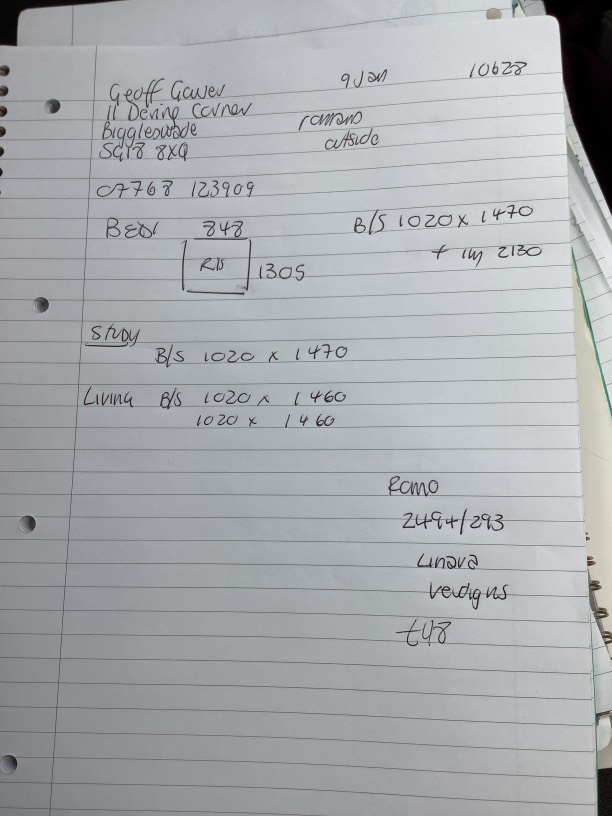 Geoff Gower 9 Jan 10628
11 Dering Corner
Biggleswade romans
SG18 8XQ outside
07768 123909
BED1 848 B/S 1020 x 1470
R/B 1305 + 2130
Study
B/S 1020 x 1470
Living B/S 1020 x 1460
1020 x 1460
Romo
2494/293
Linara
Verdigris
£48